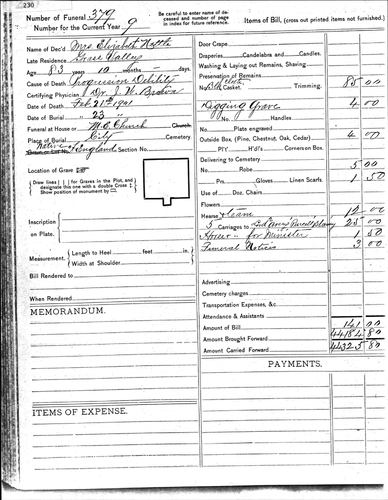 230
Number of Funeral 379
Number for the Current Year 9
Be careful to enter name of deceased and number of page in index for future reference.
Items of Bill, (cross out printed items not furnished.)
Name of Dec'd Mrs Elizabeth
Late Residence Grass Valley
Age 83 years 10 months – days.
Cause of Death Progressive Debility
Certifying Physician Dr. J. W.
Date of Death Feb. 21st 1901
Date of Burial " 23 "
Funeral at House or M. E. Church Church.
Place of Burial City Cemetery.
Native England Section No.
Location of Grave
Draw lines | | for Graves in the Plot, and designate this one with a double Cross
Show position of monument by
Inscription on Plate.
Measurement, Length to Heel feet in.
Width at Shoulder
Bill Rendered to
When Rendered
MEMORANDUM.
ITEMS OF EXPENSE.
Door Crape
Draperies Candelabra and Candles.
Washing & Laying out Remains, Shaving
Preservation of Remains
No. Blk Cloth Casket Trimming. 85 00
Digging Grave 4 00
No. Handles
Plate engraved
Outside Box (Pine, Chestnut, Oak, Cedar) 4 00
P'l'y H'd'l's Corners on Box.
Delivering to Cemetery 5 00
No. Robe
Prs. Gloves Linen Scarfs. 1 50
Use of Doz. Chairs
Flowers
Hearse & team 12 00
5 Carriages to 25 00
Horse for Minister 1 50
Funeral Notices 3 00
Advertising
Cemetery charges
Transportation Expenses, &c.
Attendance & Assistants
Amount of Bill 141 00
Amount Brought Forward 44184 80
Amount Carried Forward 44325 80
PAYMENTS.